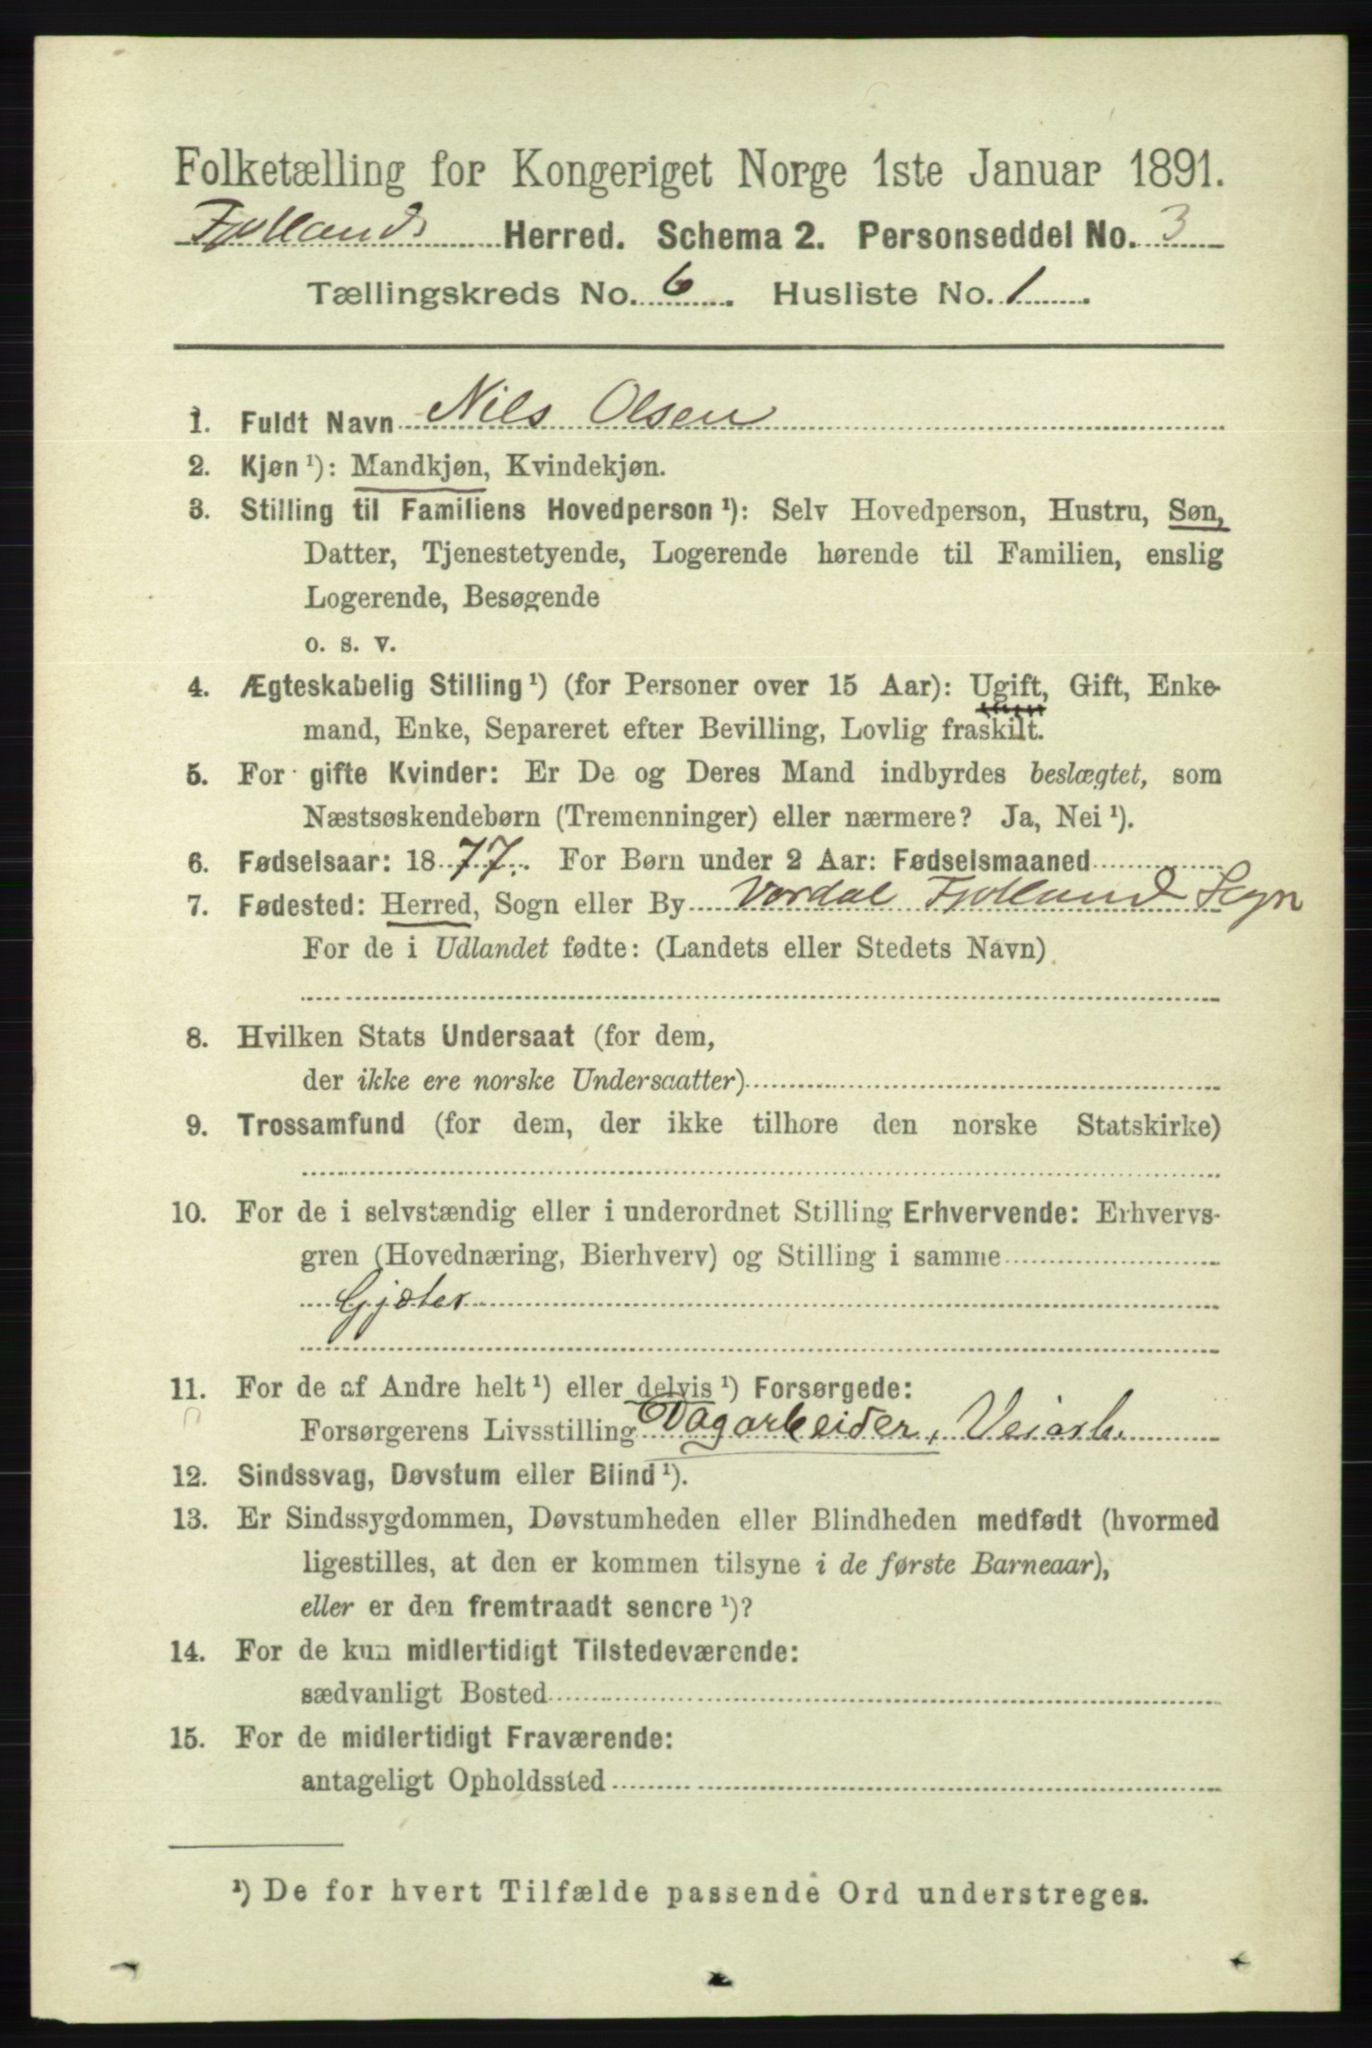 Folketælling for Kongeriget Norge 1ste Januar 1891.
Fjotlands Herred. Schema 2. Personseddel No. 3
Tællingskreds No. 6. Husliste No. 1.
1. Fuldt Navn Nils Olsen
2. Kjøn ¹): Mandkjøn, Kvindekjøn.
3. Stilling til Familiens Hovedperson ¹): Selv Hovedperson, Hustru, Søn,
Datter, Tjenestetyende, Logerende hørende til Familien, enslig
Logerende, Besøgende
o. s. v.
4. Ægteskabelig Stilling ¹) (for Personer over 15 Aar): Ugift, Gift, Enke-
mand, Enke, Separeret efter Bevilling, Lovlig fraskilt.
5. For gifte Kvinder: Er De og Deres Mand indbyrdes beslægtet, som
Næstsøskendebørn (Tremenninger) eller nærmere? Ja, Nei ¹).
6. Fødselsaar: 1877. For Børn under 2 Aar: Fødselsmaaned
7. Fødested: Herred, Sogn eller By Vordal Fjotland Sogn
For de i Udlandet fødte: (Landets eller Stedets Navn)
8. Hvilken Stats Undersaat (for dem,
der ikke ere norske Undersaatter)
9. Trossamfund (for dem, der ikke tilhore den norske Statskirke)
10. For de i selvstændig eller i underordnet Stilling Erhvervende: Erhvervs-
gren (Hovednæring, Bierhverv) og Stilling i samme
Gjæter
11. For de af Andre helt ¹) eller delvis ¹) Forsørgede:
Forsørgerens Livsstilling Dagarbeider, Veiarb.
12. Sindssvag, Døvstum eller Blind ¹).
13. Er Sindssygdommen, Døvstumheden eller Blindheden medfødt (hvormed
ligestilles, at den er kommen tilsyne i de første Barneaar),
eller er den fremtraadt senere ¹)?
14. For de kun midlertidigt Tilstedeværende:
sædvanligt Bosted
15. For de midlertidigt Fraværende:
antageligt Opholdssted
¹) De for hvert Tilfælde passende Ord understreges.